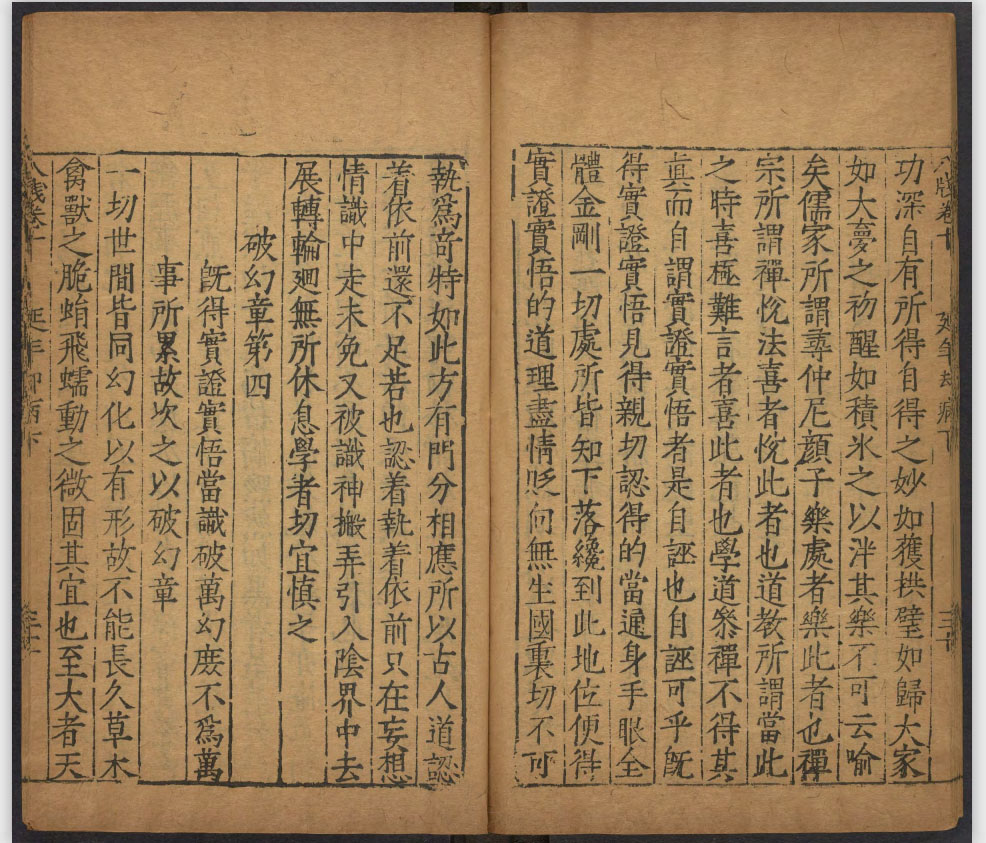 功深自有所得自得之妙如獲拱璧如歸大家
如大夢之初醒如積氷之以泮其樂不可云喻
矣儒家所謂尋仲尼顔子樂處者樂此者也禪
宗所謂禪恱法喜者恱此者也道教所謂當此
之時喜極難言者喜此者也學道叅禪不得其
眞而自謂實證實悟者是自誣也自誣可乎旣
得實證實悟見得親切認得的當遍身手眼全
體金剛一切處所皆知下落纔到此地位便得
實證實悟的道理盡情貶向無生國裏切不可
執爲竒特如此方有門分相應所以古人道認
着依前還不足若也認着執着依前只在妄想
情識中走未免又被識神搬弄引入陰界中去
展轉輪廻無所休息學者切宜慎之
破幻章第四
旣得實證實悟當識破萬幻庻不爲萬
事所累故次之以破幻章
一切世間皆同幻化以有形故不能長久草木
禽獸之脆蛕飛蠕動之微固其宜也至大者天